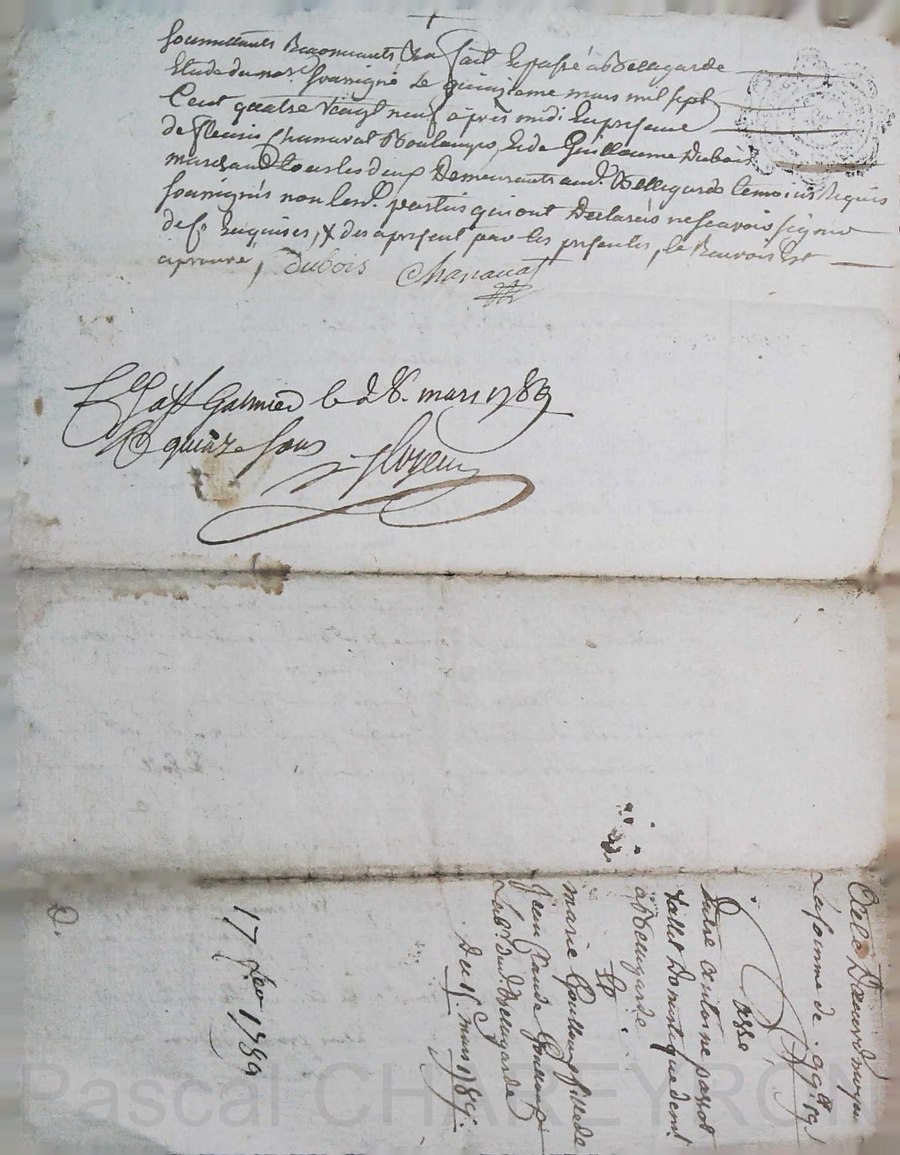 soumettants Renonceants &ca fait et passé à Bellegarde
Etude du nore soussigné le quinzieme mars mil sept
Cent quatre vingt neuf après midi En presence
de fleuris Chanavat Boulanger, et de Guillaume Dubois
marchand tous les deux Demeurants aud. Bellegarde temoins Requis
soussignés non lesd. parties qui ont Declarées ne scavoir signer
de ce Enquises, & des apresent par les presentes, le Renvoi Est
aprouvé, Dubois Chanavat
Galmier le 28. mars 1789
quinze sous
acte D'accord moyen
La somme de 99tt 19s
passé
Entre antoine passot
vallet Domestique demt
a Bellegarde
Et
marie Goutteno fille de
Jean Claude
Labr aud. Bellegarde
Du 15 mars 1789
17 1789
Pascal CHAREYRON